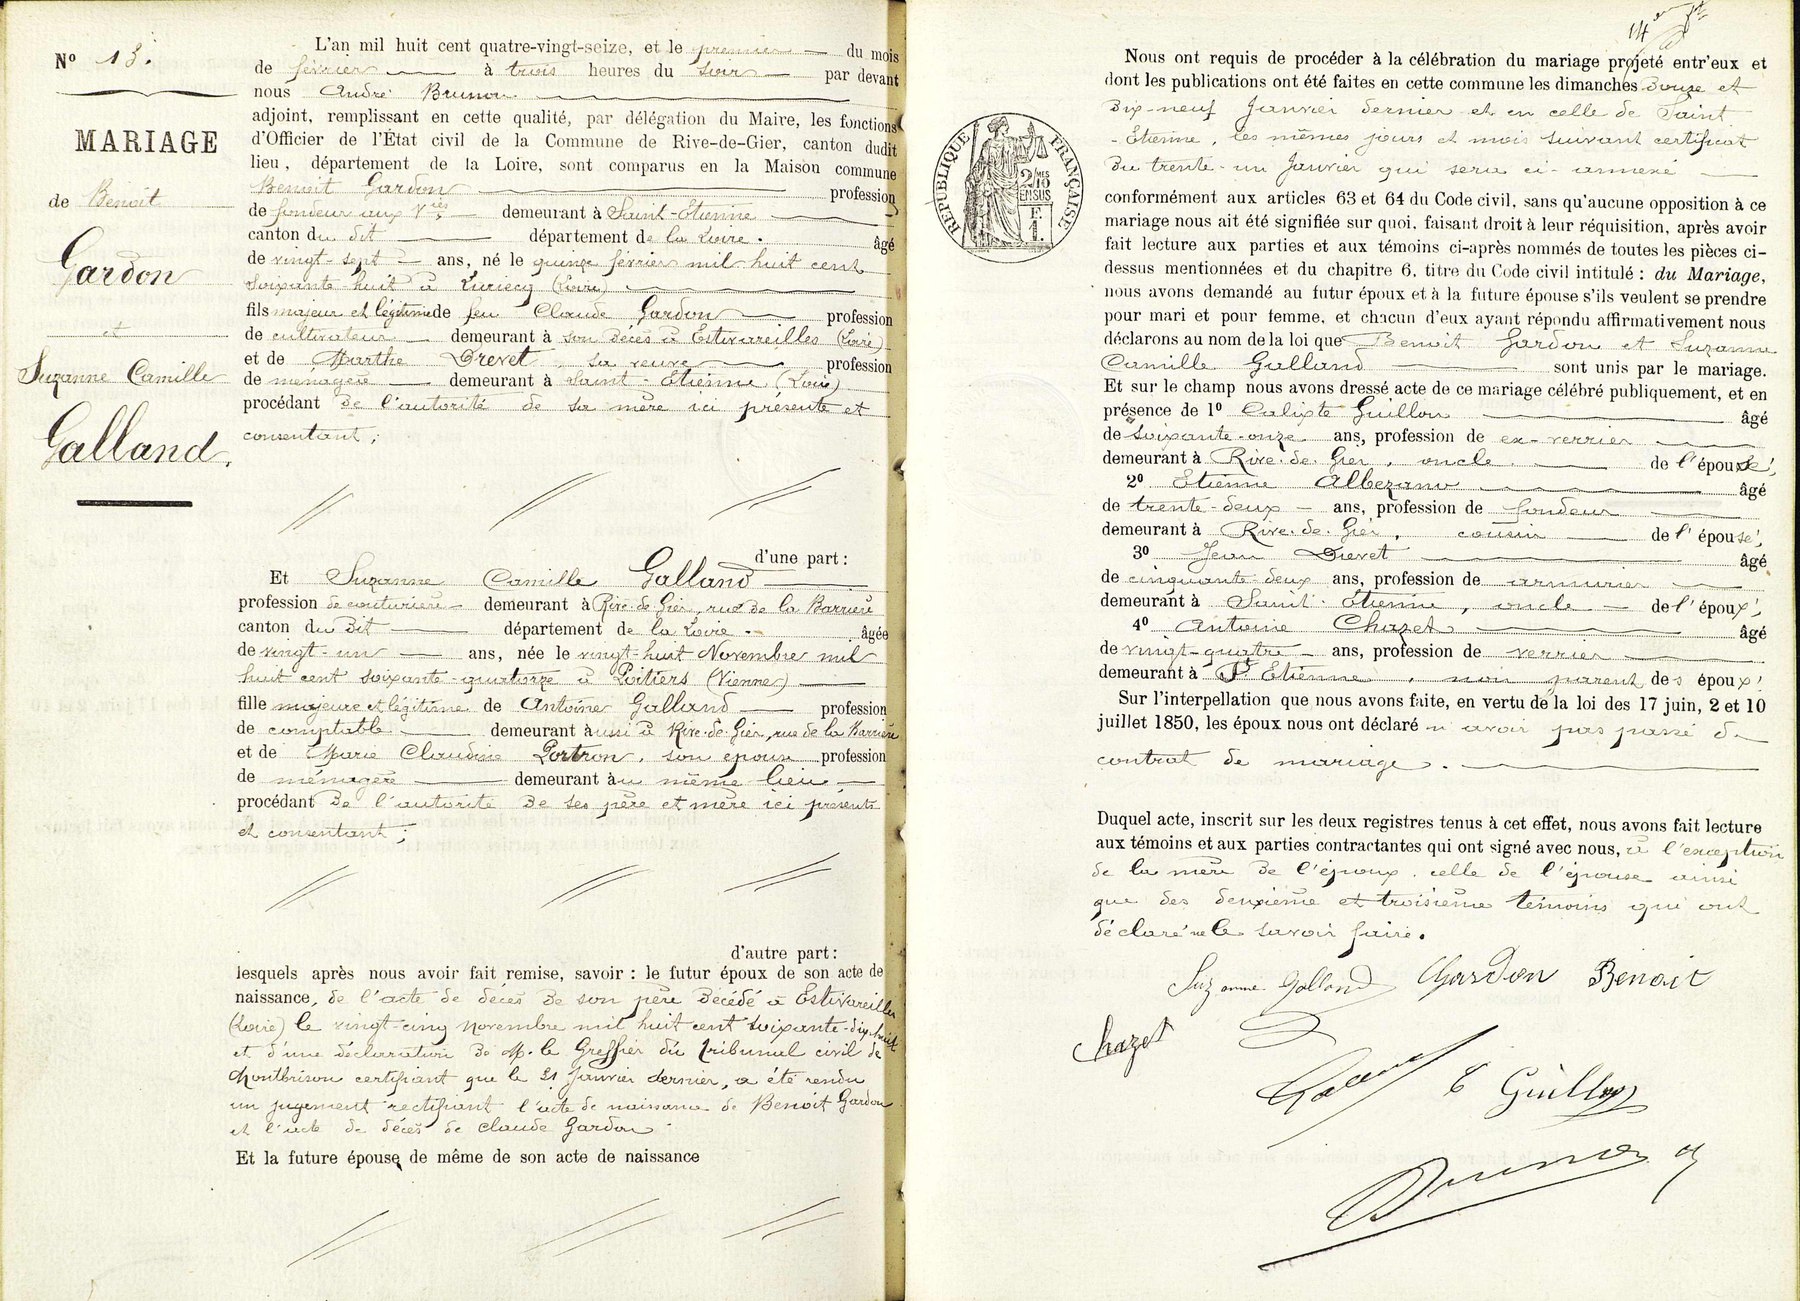 N° 13.
MARIAGE
de Benoit
Gardon
et
Suzanne Camille
Galland.
L'an mil huit cent quatre-vingt-seize, et le premier du mois
de février à trois heures du soir par devant
nous André Brunon
adjoint, remplissant en cette qualité, par délégation du Maire, les fonctions
d'Officier de l'État civil de la Commune de Rive-de-Gier, canton dudit
lieu, département de la Loire, sont comparus en la Maison commune
Benoit Gardon profession
de fondeur aux Vries demeurant à Saint-Etienne
canton du dit département de la Loire. âgé
de vingt-sept ans, né le quinze février mil huit cent
soixante-huit à Luriecq (Loire)
fils majeur et légitime de feu Claude Gardon profession
de cultivateur demeurant à son décès à Estivareilles (Loire)
et de Marthe Drevet sa veuve profession
de ménagère demeurant à Saint-Etienne (Loire)
procédant de l'autorité de sa mère ici présente et
consentant;
d'une part :
Et Suzanne Camille Galland
profession de couturière demeurant à Rive-de-Gier, rue de la Barrière
canton du Dit département de la Loire. âgée
de vingt-un ans, née le vingt-huit Novembre mil
huit cent soixante-quatorze à Poitiers (Vienne)
fille majeure et légitime de Antoine Galland profession
de comptable demeurant aussi à Rive-de-Gier, rue de la Barrière
et de Marie Claudine Portron, son épouse profession
de ménagère demeurant au même lieu
procédant de l'autorité de ses père et mère ici présents
et consentant;
d'autre part :
lesquels après nous avoir fait remise, savoir : le futur époux de son acte de
naissance, de l'acte de décès de son père décédé à Estivareilles
(Loire) le vingt-cinq novembre mil huit cent soixante-dix-huit
et d'une déclaration de M. le Greffier du tribunal civil de
Montbrison certifiant que le 21 Janvier dernier, a été rendu
un jugement rectifiant l'acte de naissance de Benoit Gardon
et l'acte de décès de Claude Gardon
Et la future épouse de même de son acte de naissance
14
RÉPUBLIQUE FRANÇAISE
2/10 MES
EN SUS
F.
1.
Nous ont requis de procéder à la célébration du mariage projeté entr'eux et
dont les publications ont été faites en cette commune les dimanches Douze et
Dix-neuf Janvier dernier et en celle de Saint
-Etienne, les mêmes jours et mois suivant certificat
du trente-un Janvier qui sera ci-annexé
conformément aux articles 63 et 64 du Code civil, sans qu'aucune opposition à ce
mariage nous ait été signifiée sur quoi, faisant droit à leur réquisition, après avoir
fait lecture aux parties et aux témoins ci-après nommés de toutes les pièces ci-
dessus mentionnées et du chapitre 6, titre du Code civil intitulé : du Mariage,
nous avons demandé au futur époux et à la future épouse s'ils veulent se prendre
pour mari et pour femme, et chacun d'eux ayant répondu affirmativement nous
déclarons au nom de la loi que Benoit Gardon et Suzanne
Camille Galland sont unis par le mariage.
Et sur le champ nous avons dressé acte de ce mariage célébré publiquement, et en
présence de 1° Calixte Guillon âgé
de soixante-onze ans, profession de ex-verrier
demeurant à Rive-de-Gier, oncle de l'épouse,
2° Etienne Albezano âgé
de trente-deux ans, profession de fondeur
demeurant à Rive-de-Gier, cousin de l'épouse,
3° Jean Drevet âgé
de cinquante-deux ans, profession de armurier
demeurant à Saint-Etienne, oncle de l'époux,
4° Antoine Chazet âgé
de vingt-quatre ans, profession de verrier
demeurant à St Etienne, non parent des époux.
Sur l'interpellation que nous avons faite, en vertu de la loi des 17 juin, 2 et 10
juillet 1850, les époux nous ont déclaré n'avoir pas passé de
contrat de mariage.
Duquel acte, inscrit sur les deux registres tenus à cet effet, nous avons fait lecture
aux témoins et aux parties contractantes qui ont signé avec nous, à l'exception
de la mère de l'époux, celle de l'épouse ainsi
que des deuxième et troisième témoins qui ont
déclaré ne le savoir faire.
Suzanne Galland Gardon Benoit
Chazet
Galland C Guillon
Brunon